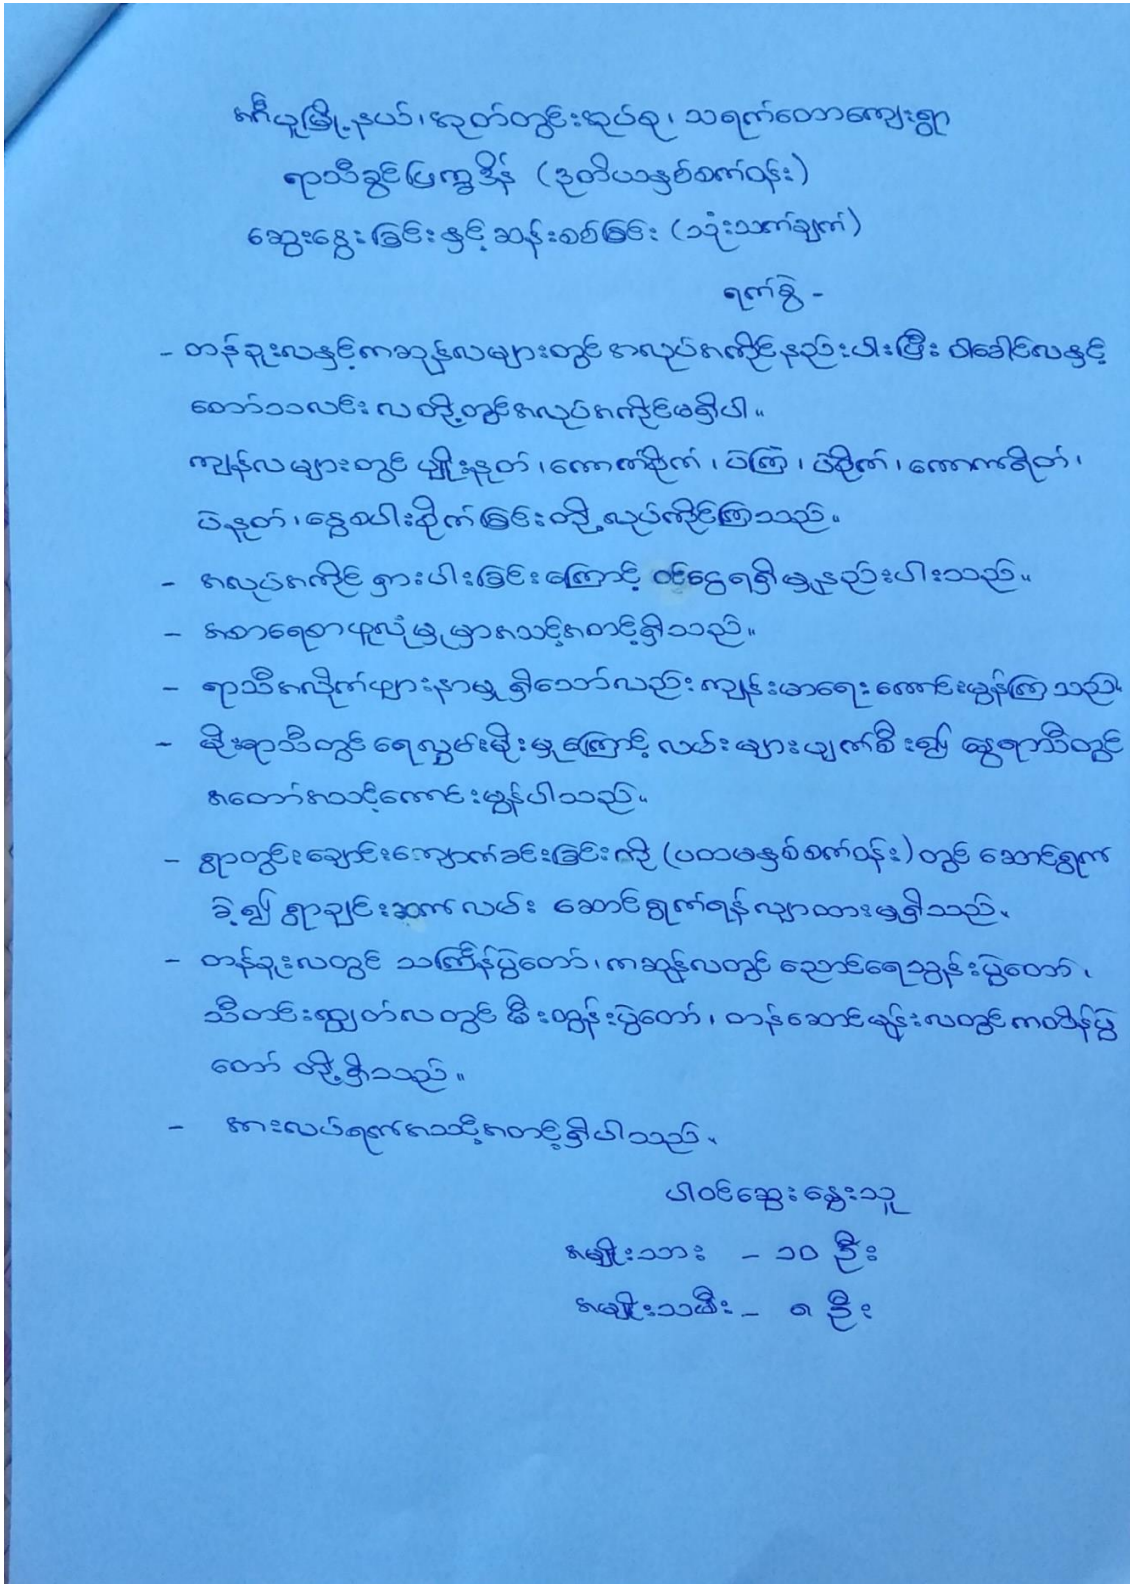 အင်္ဂပူမြို့နယ်၊ အုတ်တွင်းအုပ်စု၊ သရက်တောကျေးရွာ
ရာသီခွင်ပြက္ခဒိန် (ဒုတိယနှစ်စက်ဝန်း)
ဆွေးနွေးခြင်းနှင့် ဆန်းစစ်ခြင်း (သုံးသက်ချက်)
ရက်စွဲ -
- တန်ခူးလနှင့်ကဆုန်လများတွင် အလုပ်အကိုင်နည်းပါးပြီး ဝါခေါင်လနှင့်
တော်သလင်းလတို့တွင်အလုပ်အကိုင်မရှိပါ။
ကျန်လများတွင် မျိုးနုတ်၊ ကောက်စိုက်၊ ပဲကြဲ၊ ပဲစိုက်၊ ကောက်ရိတ်၊
ပဲနုတ်၊ နွေစပါးစိုက်ခြင်းတို့ လုပ်ကိုင်ကြသည်။
- အလုပ်အကိုင် ရှားပါးခြင်းကြောင့် ဝင်ငွေရရှိမှုနည်းပါးသည်။
- အစာရေစာဖူလုံမှုမှာအသင့်အတင့်ရှိသည်။
- ရာသီအလိုက်ဖျားနာမှု ရှိသော်လည်းကျန်းမာရေးကောင်းမွန်ကြသည်။
- မိုးရာသီတွင် ရေလွှမ်းမိုးမှုကြောင့် လမ်းများပျက်စီး၍ နွေရာသီတွင်
အတော်အသင့်ကောင်းမွန်ပါသည်။
- ရွာတွင်းချောင်းကျောက်ခင်းခြင်းကို (ပထမနှစ်စက်ဝန်း) တွင် ဆောင်ရွက်
ခဲ့၍ ရွာချင်းဆက်လမ်း ဆောင်ရွက်ရန်လျာထားမှုရှိသည်။
- တန်ခူးလတွင် သင်္ကြန်ပွဲတော်၊ ကဆုန်လတွင် ညောင်ရေသွန်းပွဲတော်၊
သီတင်းကျွတ်လတွင် မီးထွန်းပွဲတော်၊ တန်ဆောင်မုန်းလတွင်ကထိန်ပွဲ
တော် တို့ရှိသည်။
- အားလပ်ရက်အသင့်အတင့်ရှိပါသည်။
ပါဝင်ဆွေးနွေးသူ
အမျိုးသား - ၁၀ ဦး
အမျိုးသမီး - ၈ ဦး